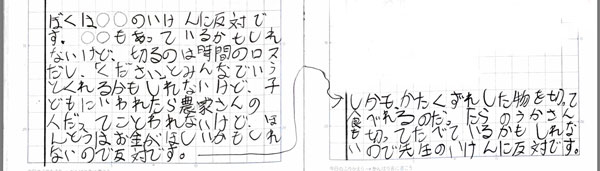 ぼくは○○のいけんに反対で
す。○○もあっているかもしれ
ないけど、切るのは時間のロス
だし、「ください」とみんなでいう
とくれるかもしれないけど、子
どもにいわれたら農家さんの
人だってことわれないけど、ほ
んとうはお金がほしいかもしれ
ないので反対です。
しかも、かたくずれした物を切って
食べれるのだったらのうかさん
も切ってたべているかもしれな
いので先生のいけんに反対です。